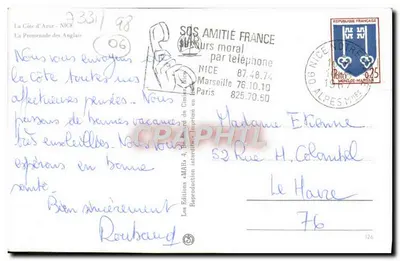 7331/98
06
La Côte d'Azur - NICE
La Promenade des Anglais
SOS AMITIE FRANCE
secours moral
par telephone
NICE 87.48.74
Marseille 76.10.10
Paris 825.70.50
06 NICE
1967
ALPES MMES
REPUBLIQUE FRANÇAISE
0,25
POSTES
MONT-DE-MARSAN
Nous vous envoyons de
la côte toutes nos
affectueuses pensées. Nous
passons de bonnes vacances
très ensoleillées. Nous vous
espérons en bonne
santé.
Bien sincèrement
Roubaud
Madame Etienne
52 Rue H.
Le Havre
76
Les Editions
Reproduction interdite